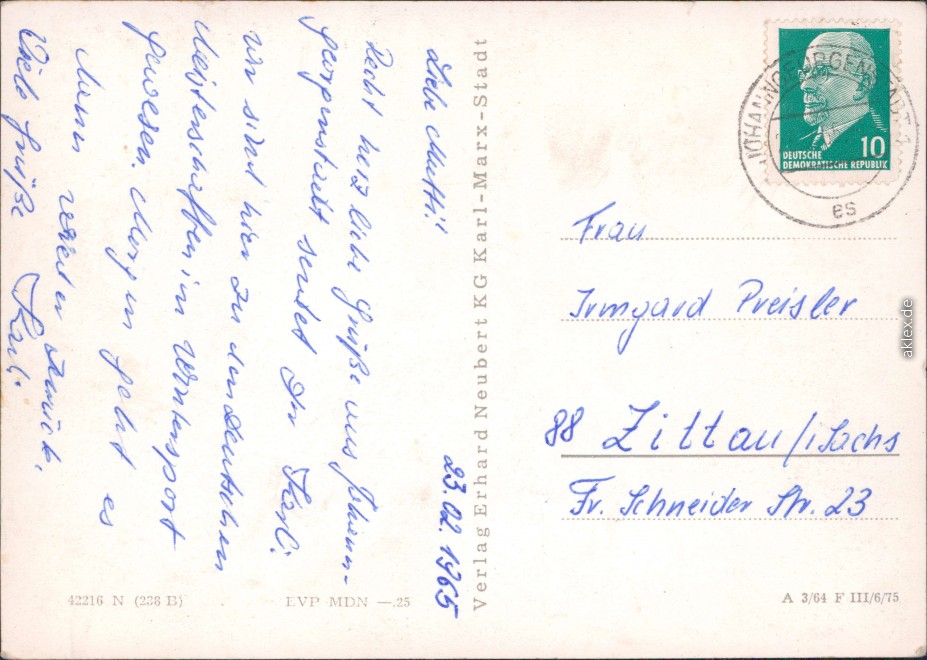 Liebe Mutti! 23.02.1965
Recht herzliebe Grüße aus Johann-
georgenstadt sendet Dir Karli.
wir sind hier zu den Deutschen
Meisterschaften im Wintersport
gewesen. Morgen geht es
dann weiter zurück.
Viele Grüße Karli.
Verlag Erhard Neubert KG Karl-Marx-Stadt
42216 N (238 B)
EVP MDN —.25
10
DEUTSCHE
DEMOKRATISCHE REPUBLIK
JOHANNGEORGENSTADT 1
as
Frau
Irmgard Preisler
88 Zittau/i Sachs
Fr. Schneider Str. 23
A 3/64 F III/6/75
aklex.de